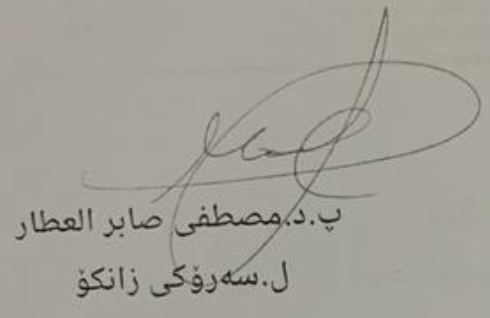 پ.د.مصطفى صابر العطار
ل.سەرۆکی زانکۆ